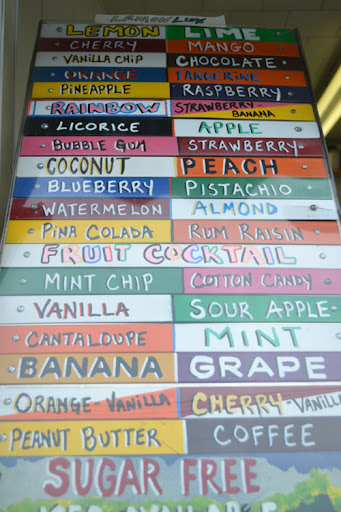 LEMON LIME
LEMON LIME
CHERRY MANGO
VANILLA CHIP CHOCOLATE
ORANGE TANGERINE
PINEAPPLE RASPBERRY
RAINBOW STRAWBERRY-BANANA
LICORICE APPLE
BUBBLE GUM STRAWBERRY
COCONUT PEACH
BLUEBERRY PISTACHIO
WATERMELON ALMOND
PINA COLADA RUM RAISIN
FRUIT COCKTAIL
MINT CHIP COTTON CANDY
VANILLA SOUR APPLE
CANTALOUPE MINT
BANANA GRAPE
ORANGE-VANILLA CHERRY-VANILLA
PEANUT BUTTER COFFEE
SUGAR FREE
ICES AVAILABLE